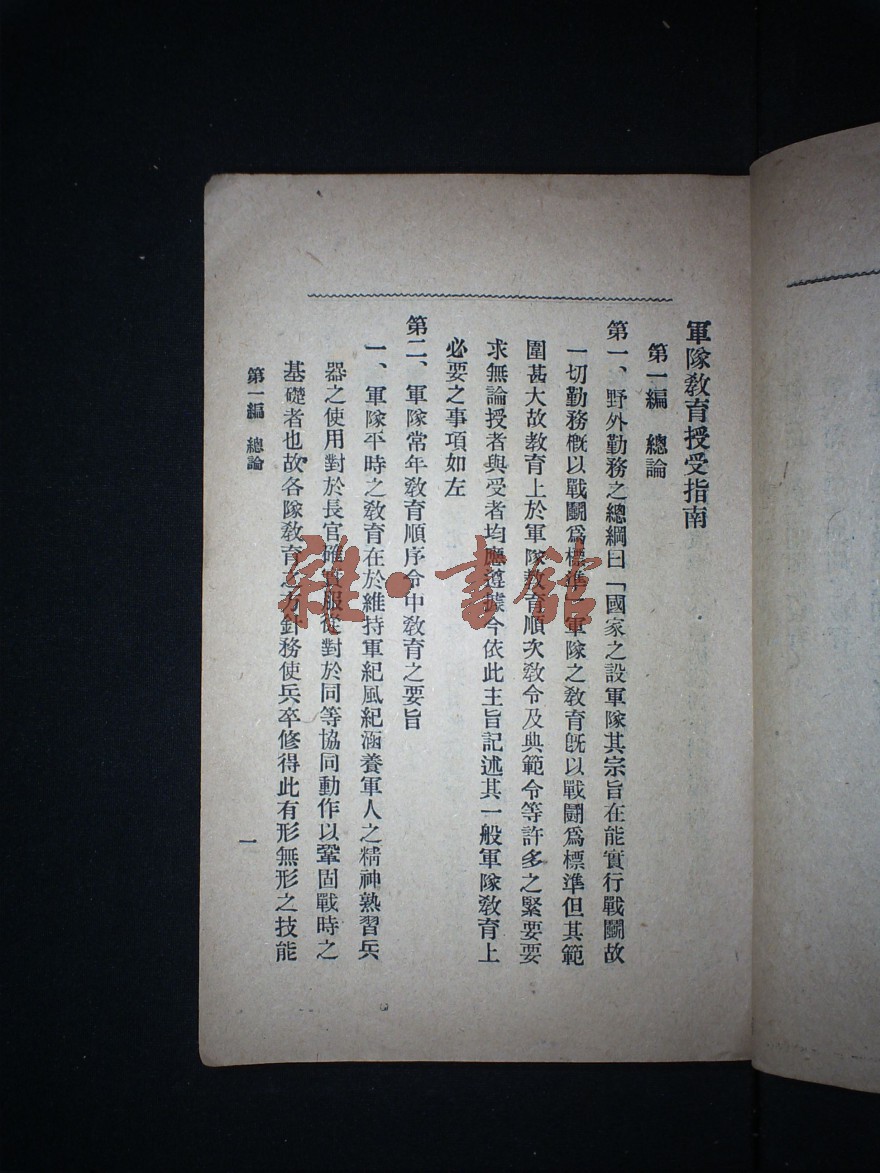 軍隊敎育授受指南
第一編　總論
第一、野外勤務之總綱曰「國家之設軍隊其宗旨在能實行戰鬭故
一切勤務槪以戰鬭爲標準」軍隊之敎育旣以戰鬭爲標準但其範
圍甚大故敎育上於軍隊敎育順次敎令及典範令等許多之緊要要
求無論授者與受者均應遵據今依此主旨記述其一般軍隊敎育上
必要之事項如左
第二、軍隊常年敎育順序令中敎育之要旨
一、軍隊平時之敎育在於維持軍紀風紀涵養軍人之精神熟習兵
器之使用對於長官確實服從對於同等協同動作以鞏固戰時之
基礎者也故各隊敎育之方針務使兵卒修得此有形無形之技能
第一編　總論
一
雜·書館